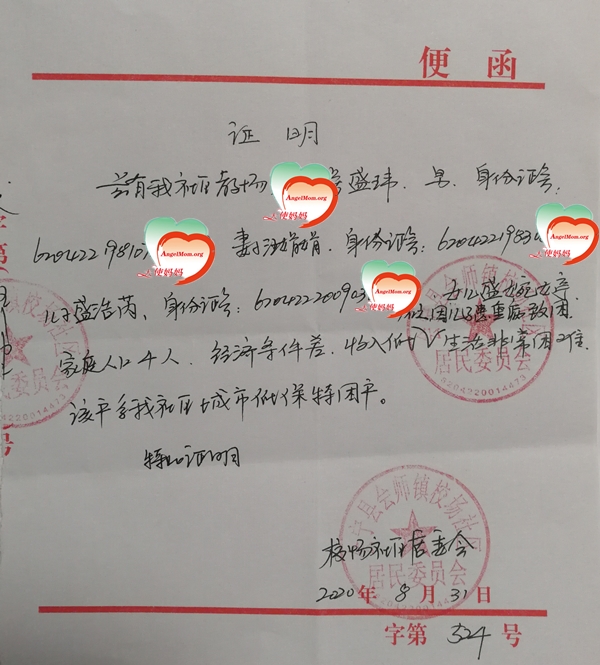 便函
证明
兹有我社区教场 盛玮、男、身份证号:
6204221981 妻子汪娟娟、身份证号:620422198
儿子盛浩芮、身份证号:620422200903
但因儿子患重病致困
家庭人口4人、经济条件差、收入低、生活非常困难.
该户系我社区城市低保特困户。
特此证明
校场社区居委会
2020年8月31日
字第 324 号
会宁县会师镇校场社区
居民委员会
6204220014473
AngelMom.org
天使妈妈
AngelMom.org
天使妈妈
AngelMom.org
天使妈妈
AngelMom.org
天使妈妈